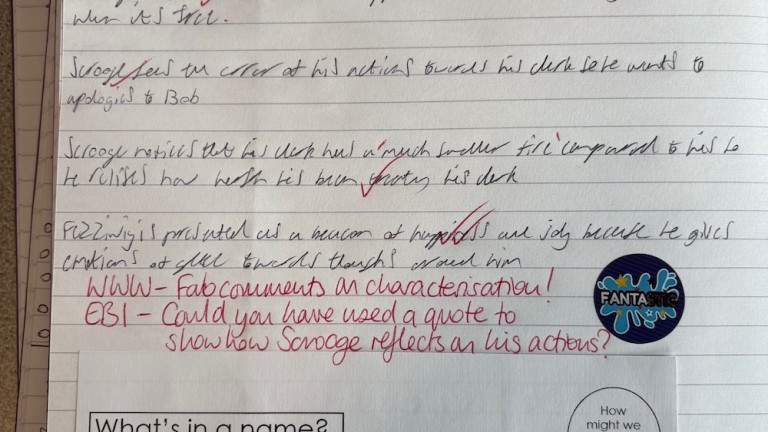 when it's free.
Scrooge sees the error of his actions towards his clerk so he wants to
apologies to Bob
Scrooge notices that his clerk had a 'much smaller fire' compared to his so
he rilises how hersh his been his clerk
Fizziwig is presented as a beacon of happiness and joy because he gives
emotions of glee towards around him
WWW - Fab comments on characterisation!
EBI - Could you have used a quote to
show how Scrooge reflects on his actions?
FANTASTIC
What's in a name?
How
might we